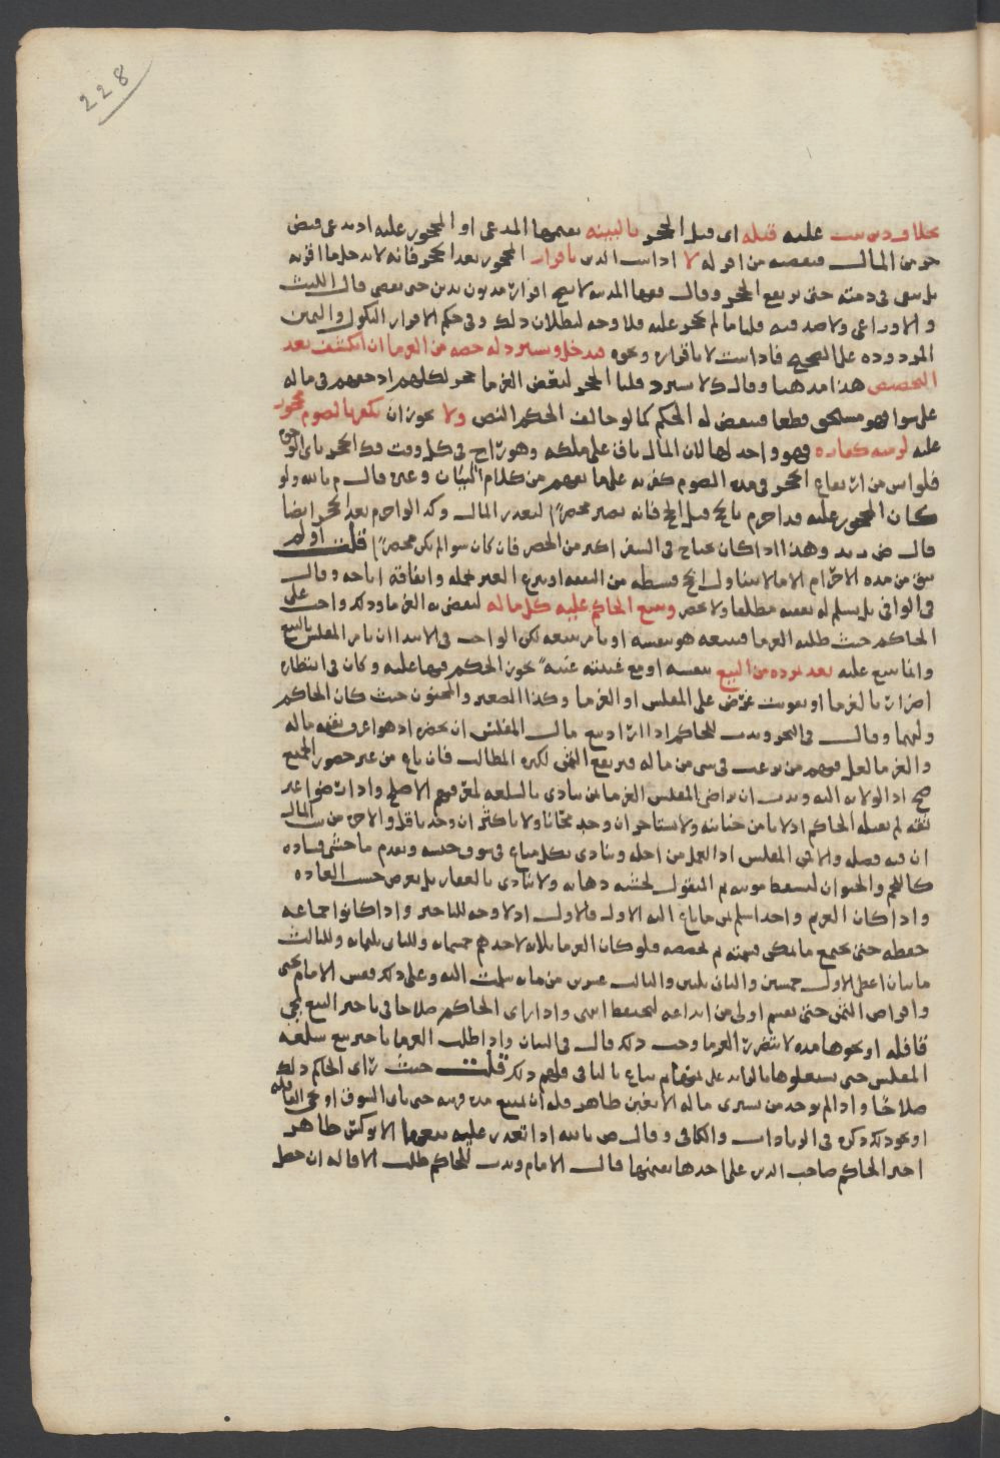 228
بخلاف دين ثبت عليه قبله اي قبل الحجر بالبينه يقيمها المدعي او المحجور عليه اذ يدعي قبض
من المال من اقر له لا اذا ثبت الدين باقرار المحجور بعد الحجر فانه لا يدخل ما اقر به
بل يبقى في ذمته حتى يرتفع الحجر وقال لا يصح اقراره مديون بدين حتى يقضي قال الليث
والاوزاعي ولا صدقه قلنا ما لم يحجر عليه فلا وجه لبطلان ذلك وفي حكم الاقرار النكول واليمين
المردوده على الصحيح فاذا ثبت لا باقراره ونحوه فيدخل ويسترد له حصه من الغرما ان انكشف بعد
التخصيص هذا مذهبنا وقال ك لا يسترد قلنا الحجر لبعض الغرما حجر لكلهم اذ حقهم في ماله
على سوا فهو مستحق قطعا فينقض له الحكم كما لو خالف الحكم النص ولا يجوز ان يكفر بالصوم محجور
عليه لزمته كفاره فهو واجد لها لان المال باق على ملكه وهو
فلو ايس من ارتفاع الحجر في مده الصوم كفر به على ما يفهم من كلام البيان وغيره قال م بالله ولو
كان المحجور عليه قد احرم بالحج قبل الحج فانه يصير محصرا لتعذر المال وكذا لو احرم بعد الحجر ايضا
قال ض زيد وهذا اذا كان يحتاج في السفر اكثر من الحضر فان كان سوا لم يكن محصرا قلت او لم
يبق من مده الاحرام الا ما لا يتناول الحج قسطه من النفقه او تبرع الغير بحمله وانفاقه اباحه وقال
في الوافي بل يسلم له نفقته مطلقا ولا يحصر ويبيع الحاكم عليه كل ماله ليقضي به الغرما وذلك واجب على
الحاكم حيث طلبه الغرما فيبيعه هو بنفسه او يامر ببيعه لكن الواجب في الابتدا ان يامر المفلس بالبيع
وانما يبيع عليه بعد تمرده من البيع بنفسه او مع غيبته غيبه يجوز الحكم فيها عليه وكان في انتظاره
اضرار بالغرما او تفويت غرض على المفلس او الغرما وكذا الصغير والمجنون حيث كان الحاكم
وليهما وقال في البحر وندب للحاكم اذا اراد بيع مال المفلس ان يحضره اذ هو اعرف بثمنه ماله
والغرما لعل فيهم من يرغب في شي من ماله فيرتفع الثمن لكثره المطالب فان باع من غير حضور الجميع
صح اذ الولايه اليه وندب ان يراضي المفلس الغرما بمن ينادي بالسلعه لمعرفتهم الاصلح واذا رضوا غير
ثقه لم يقبله الحاكم اذ لا يامن خيانته ولا يستاجر ان وجد مجانا ولا باكثر ان وجد باقل والاجره من بيت المال
ان فيه فضله والا فمن المفلس اذ العمل من اجله وينادي بكل مبيع في سوق جنسه ويقدم ما خشي فساده
كاللحم والحيوان ليسقط مونته ثم المنقول لخشيه ذهابه ولا ينادي بالعقار بل يعرض حسب العاده
واذا كان الغريم واحدا سلم ثمن ما باع اليه الاول فالاول اذ لا وجه للتاخير واذا كانوا جماعه
حفظه حتى يجتمع ما يمكن قسمته ثم يحصصه فلو كان الغرما ثلاثه لاحدهم خمسمايه وللثاني ثلثمايه وللثالث
مايتان اعطي الاول خمسين والثاني ثلثين والثالث عشرين من مايه سلمت اليه وعلى ذلك فقس الامام يحيى
واقراض الثمن حتى يقسم اولى من ايداعه لتحفظه انتهى واذا راى الحاكم صلاحا في تاخير البيع لمجي
قافله او نحوها مده لا تضر الغرما وجب ذلك قال في البيان واذا طلب الغرما تاخير بيع سلعه
المفلس حتى يستغلوها بالفوائد على ثم تباع بالباقي فلهم ذلك قلت حيث راى الحاكم ذلك
صلاحا واذا لم يوجد من يشتري ماله الا بغبن ظاهر فله ان يمتنع مده قريبه حتى ياتي السوق او تجي القافله
او نحو ذلك ذكره في الزيادات والكافي وقال ص بالله اذا تعذر عليه بيعها الا بوكس ظاهر
اجبر الحاكم صاحب الدين على اخذها بقيمتها قال الامام وندب للحاكم طلب الاقاله ان حصل